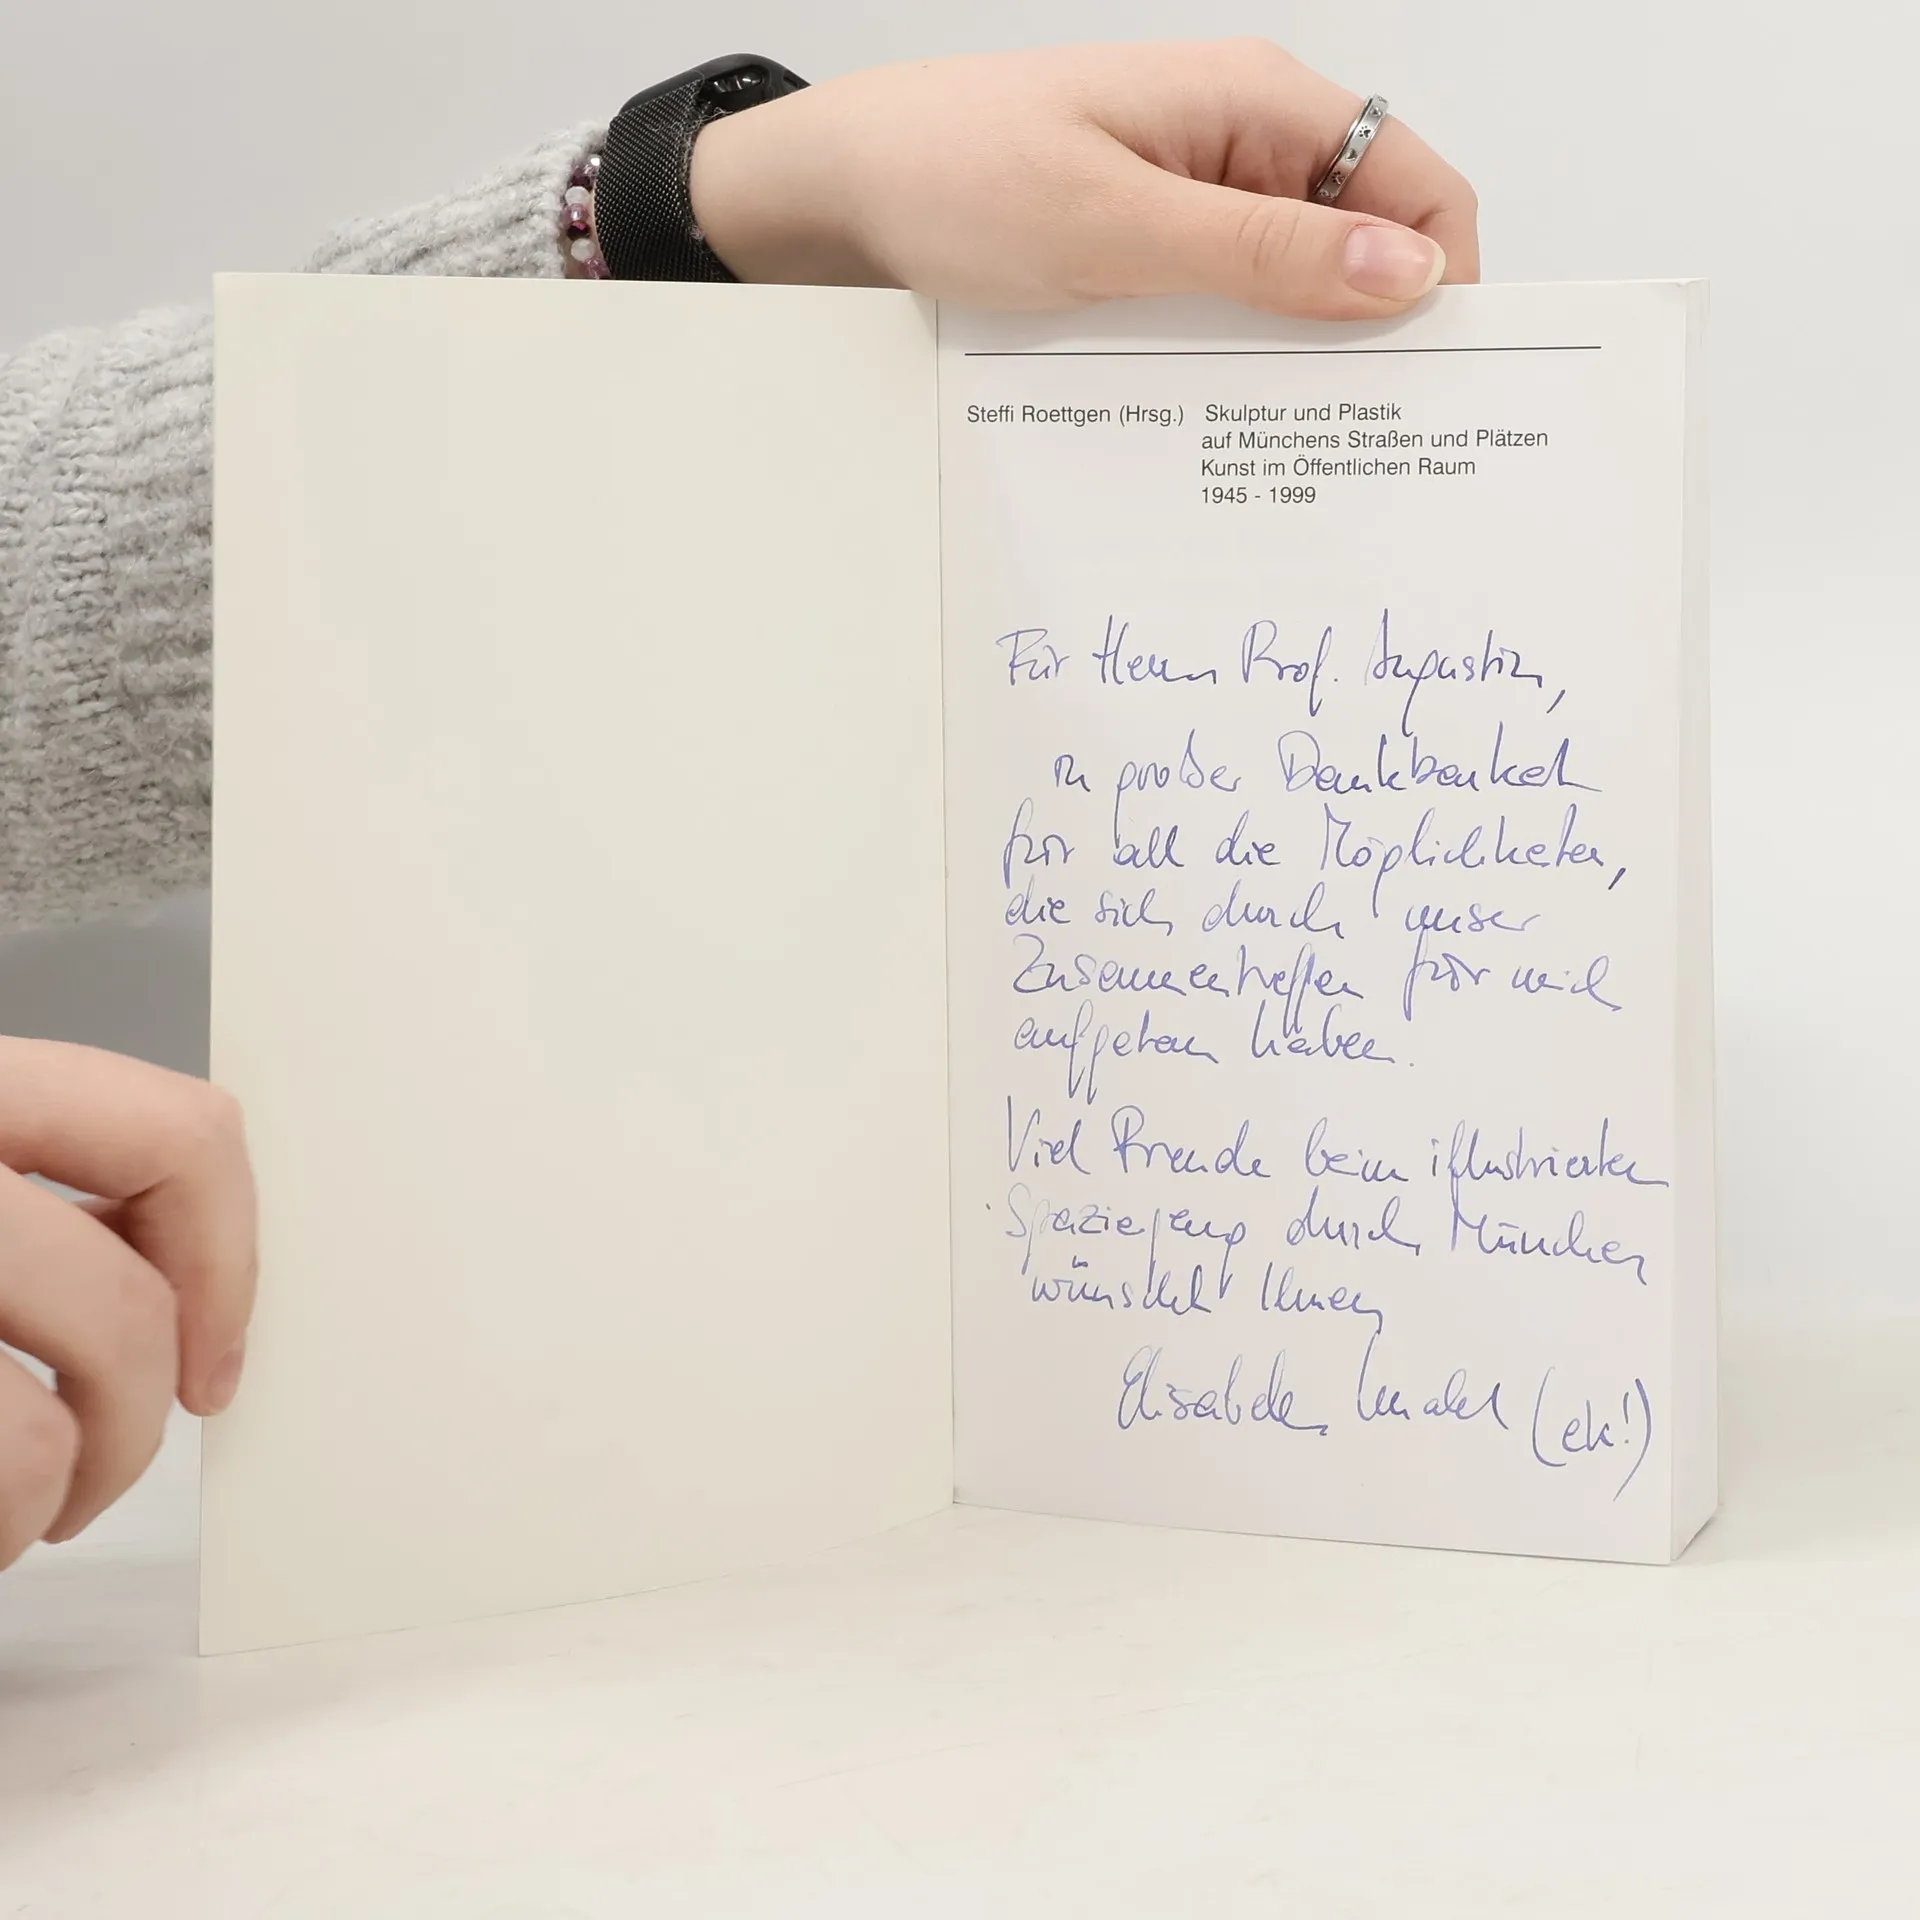 Steffi Roettgen (Hrsg.) Skulptur und Plastik
auf Münchens Straßen und Plätzen
Kunst im Öffentlichen Raum
1945 - 1999
Für Herrn Prof. Augustin,
in großer Dankbarkeit
für all die Möglichkeiten,
die sich durch unser
Zusammentreffen für mich
aufgetan haben.
Viel Freude beim illustrierten
Spaziergang durch München
wünscht Ihnen
Elisabeth (ek!)